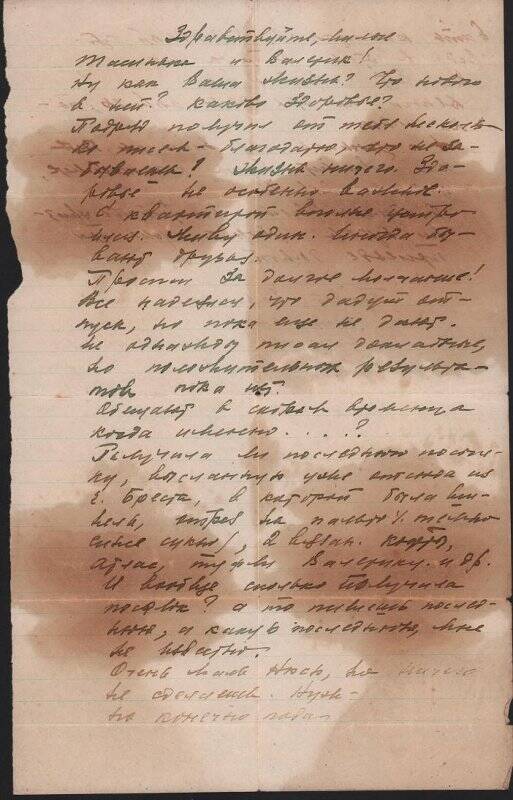 Здравствуйте, милые
Тасинька и Валерик!
Ну как Ваша жизнь? Что нового
в ней? Каково здоровье?
Подряд получил от тебя несколь-
ко писем – благодарю, что не за-
бываешь! Жизнь ничего. Здо-
ровье не особенно важное.
С квартирой вполне устро-
ился. Живу один. Иногда бы-
вают друзья.
Прости за долгое молчание!
Все надеялся, что дадут от-
пуск, но пока еще не дают.
Не однажды писал докладные,
но положительных результа-
тов пока нет.
Обещают в скором времени, а
когда именно . . . . ?
Получила ли последнюю посыл-
ку, высланную уже отсюда из
г. Бреста, в которой была ши-
нель, отрез на пальто /темно
синее сукно/, 2 вязан. кофты,
атлас, туфли Валерику и др.
И вообще сколько получила
посылок? а то пишешь послед-
нюю, а какую последнюю, мне
не известно.
Очень жаль но ничего
не сделаешь. Нуж-
но конечно